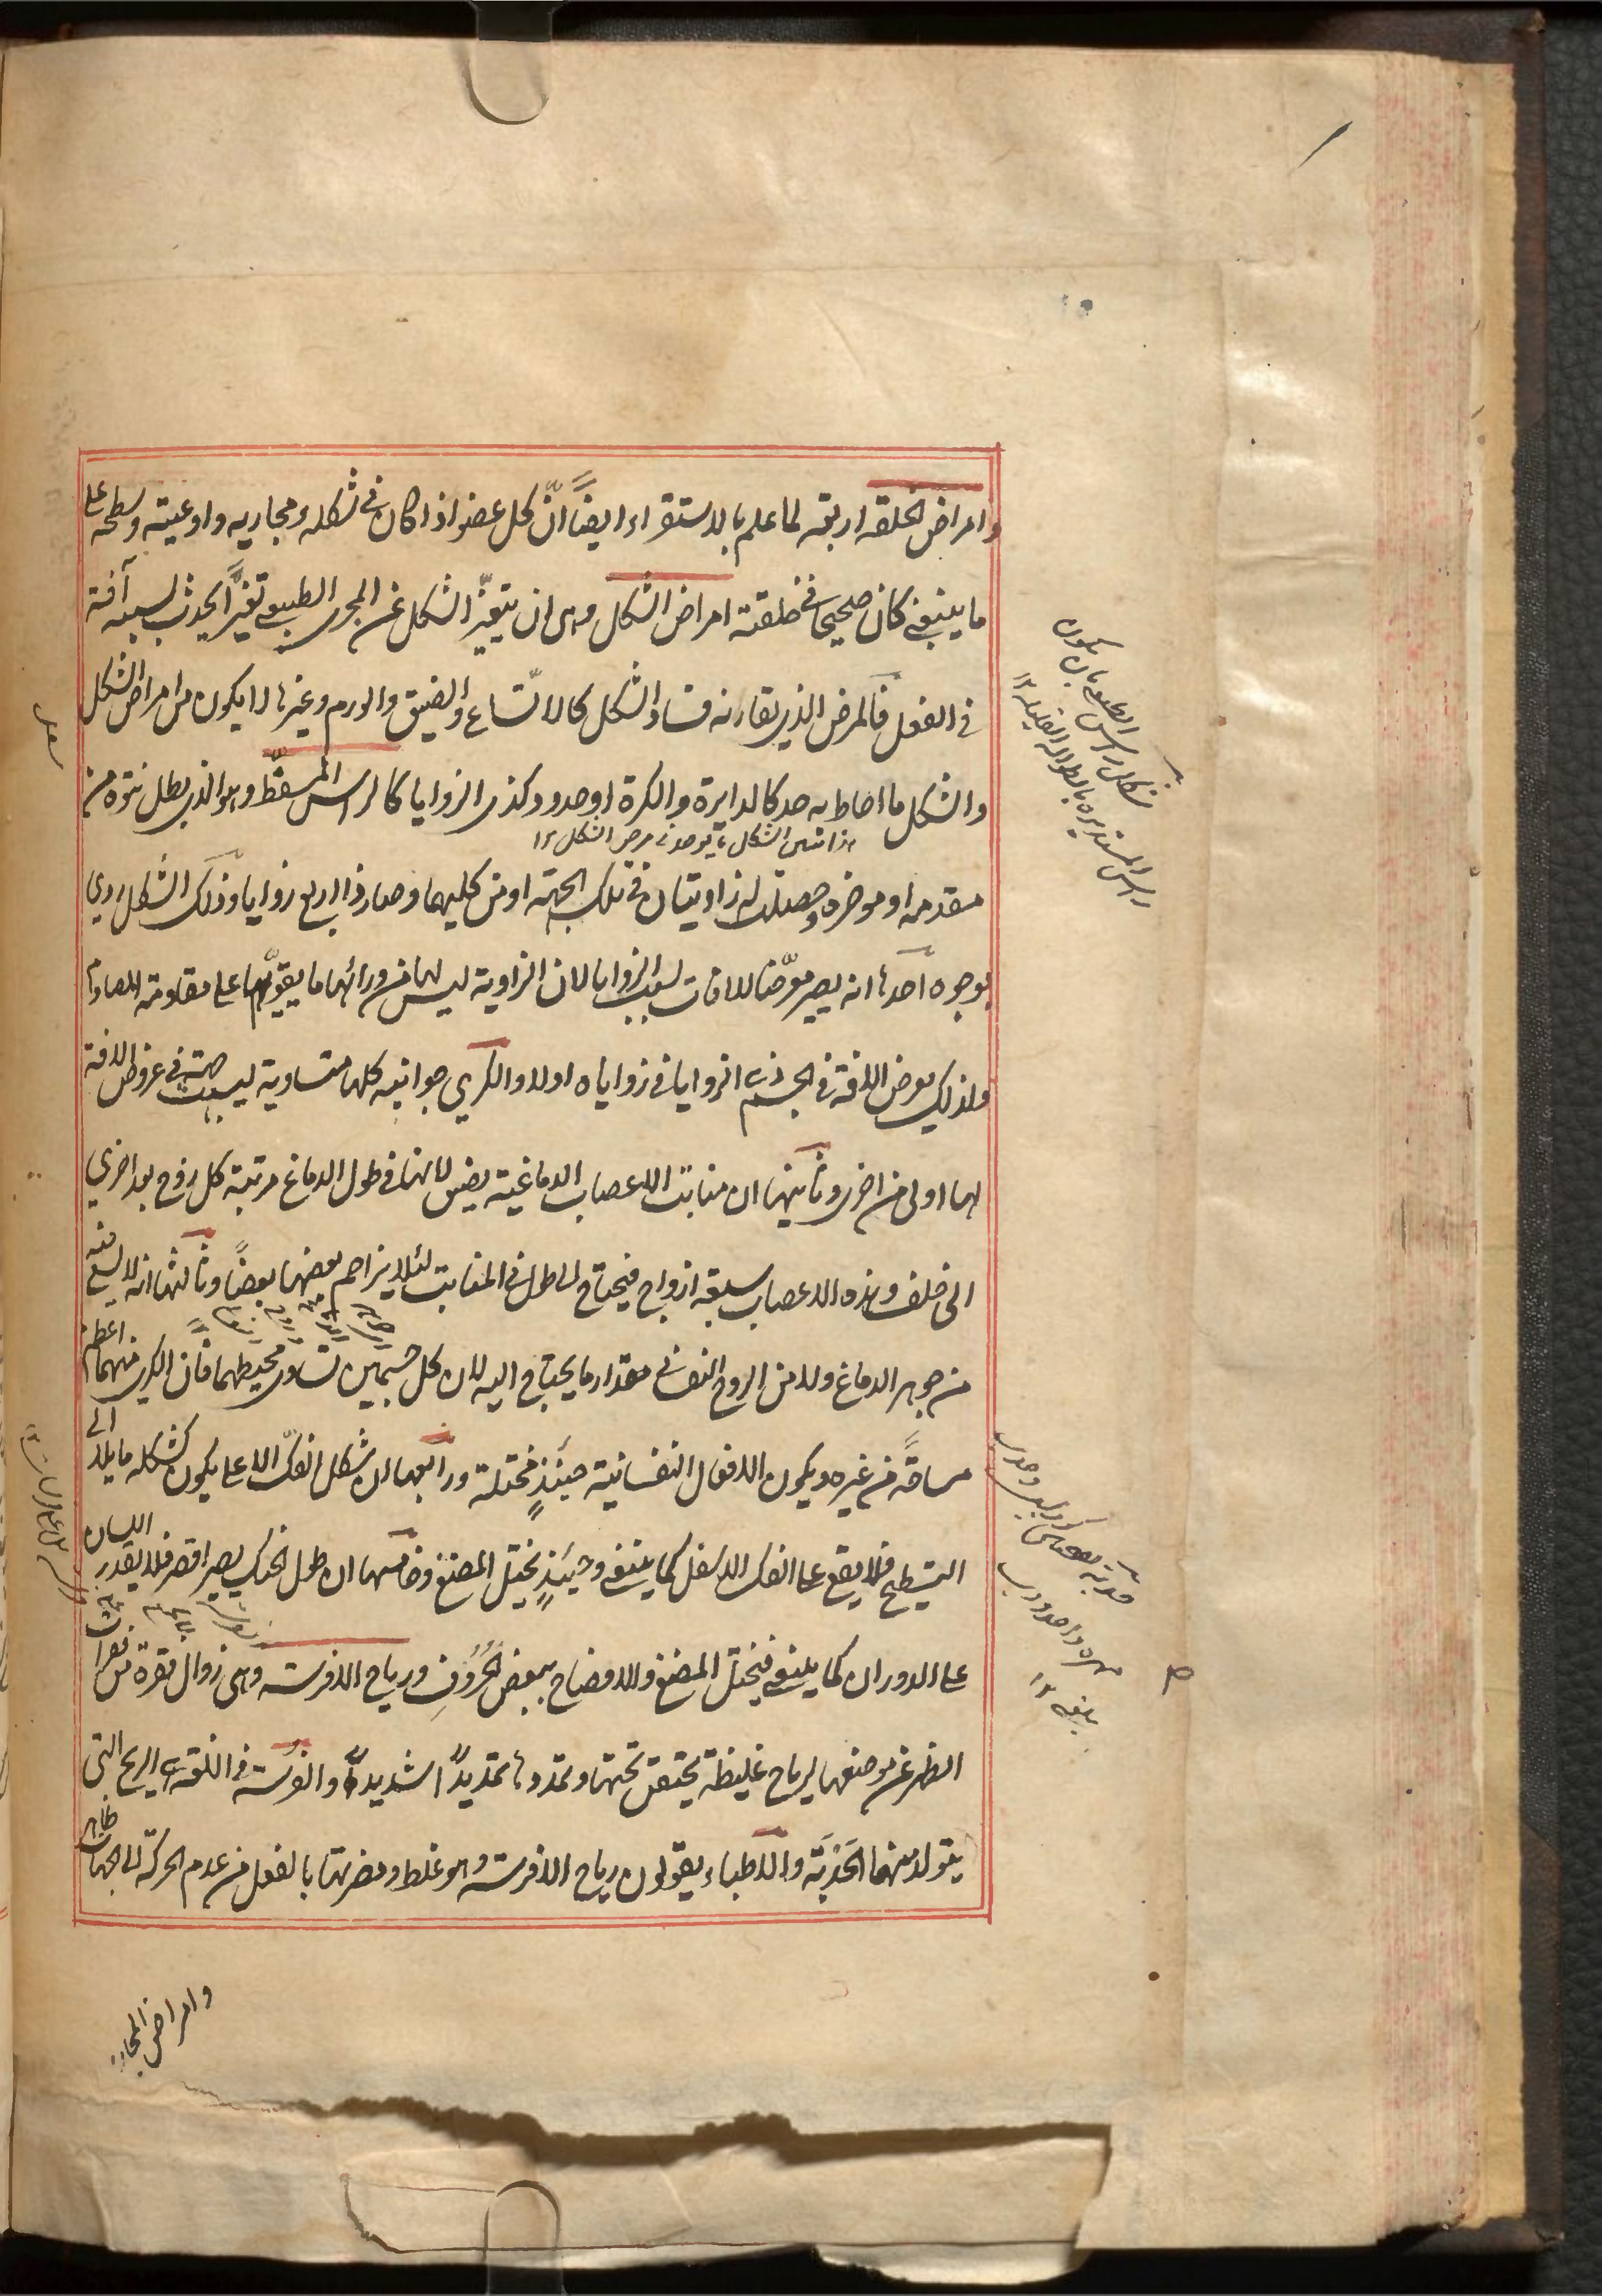 وامراض الخلقة اربعة لما علم بالاستقراء ايضاً انّ كل عضو اذا كان في شكله ومجاريه واوعيته وسطحه على
ما ينبغي كان صحيحا في خلقته امراض الشكل وهى ان يتغيّر الشكل عن المجرى الطبيعي تغيّراً يحدث بسببه آفة
في الفعل فالمرض الذي يقارنه فساد الشكل كالاتساع والضيق والورم وغيرها لا يكون من امراض الشكل
والشكل ما احاط به حد كالدايرة والكرة او حدود كذى الزوايا كالراس المسفّط وهو الذي بطل نتوه من
مقدمه او موخره وحصلت له زاويتان في تلك الجهة او من كليهما وصار ذا اربع زوايا وذلك الشكل ردي
بوجوه احدها انه يصير معرّضا للافات بسبب الزوايا لان الزاوية ليس لها من ورائها ما يقوّيها على مقاومة المصادم
ولذلك يعرض الافة في الجسم ذي الزوايا في زواياه اولا والكري جوانبه كلها متساوية ليست جهة في عروض الافة
لها اولى من اخرى وثانيها ان منابت الاعصاب الدماغية يضيق لانها في طول الدماغ مرتبة كل زوج بعد اخرى
الى خلف وهذه الاعصاب سبعة ازواج فيحتاج الى طول في المنابت لئلا يزاحم بعضها بعضاً وثالثها انه لا يسع فيه
من جوهر الدماغ ولا من الروح النفساني مقدار ما يحتاج اليه لان كل جسمين تساوى محيطهما فان الكرى منهما اعظم
مساحةً من غيره ويكون الافعال النفسانية حينئذٍ مختلة ورابعها ان شكل الفكّ الاعلى يكون كشكله مايلا الى
التسطيح فلا يقع على الفك الاسفل كما ينبغي وحينئذٍ يختل المضغ وخامسها ان طول الحنك يصير اقصر فلا يقدر اللسان
على الدوران كما ينبغي فيختل المضغ والافصاح ببعض الحُرُوفِ ورياح الافرسه وهى زوال فقرة من فقرات
الظهر عن موضعها لرياح غليظة يحتقن تحتها وتمددها تمديداً شديداً والفرسة في اللغة هي الريح التى
يتولد منها الحَدَبَة والاطباء يقولون رياح الافرسة وهو غلط ومضرتها بالفعل من عدم الحركة الى الجهات
وامراض المجارى